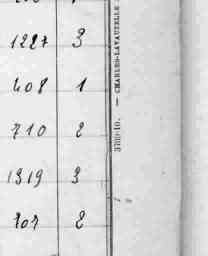 1227 3
408 1
710 2
1319 3
707 2
— CHARLES-LAVAUZELLE